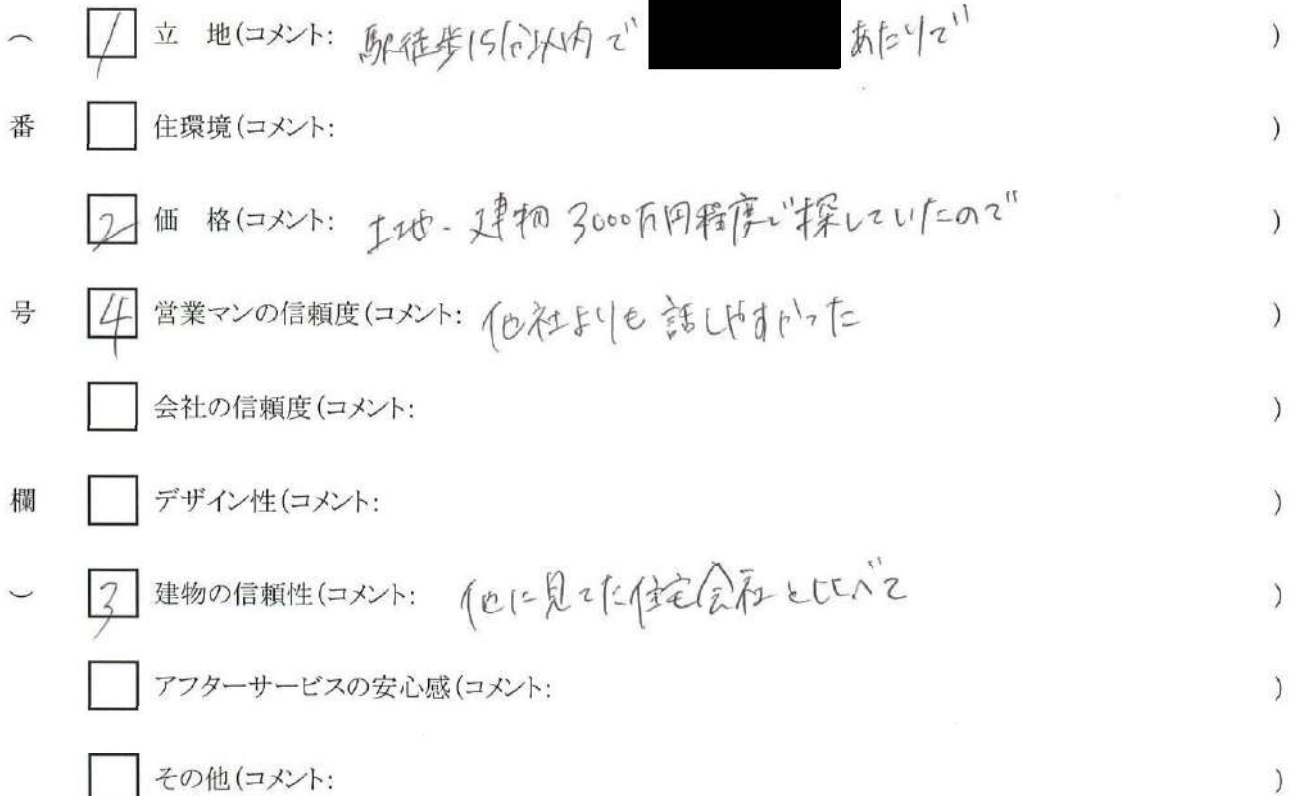 （ 1 立　地(コメント: 駅徒歩15分以内で あたりで )
番 住環境(コメント: )
2 価　格(コメント: 土地・建物 3000万円程度で探していたので )
号 4 営業マンの信頼度(コメント: 他社よりも話しやすかった )
会社の信頼度(コメント: )
欄 デザイン性(コメント: )
） 3 建物の信頼性(コメント: 他に見てた住宅会社と比べて )
アフターサービスの安心感(コメント: )
その他(コメント: )